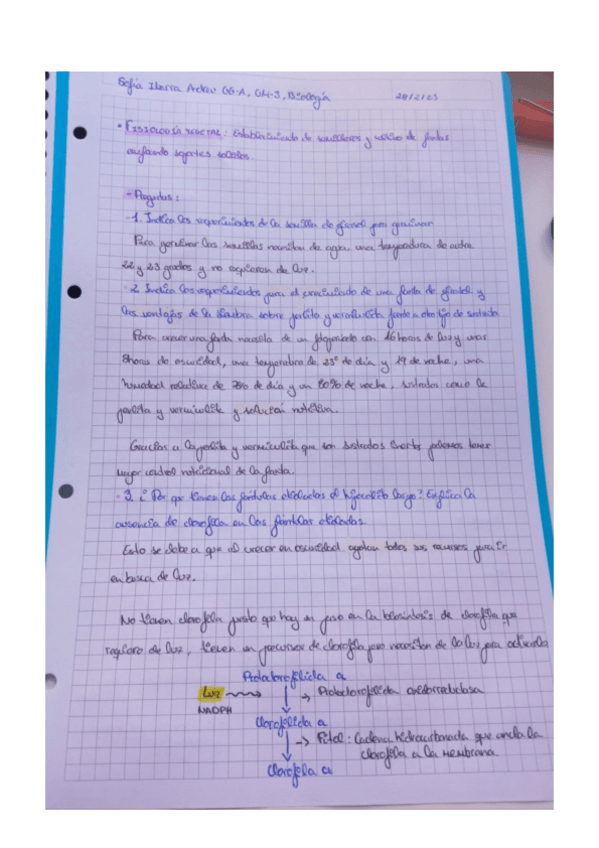 Sofía Ibarra Andreu GG-A, OH-3, Biología 28/2/23
• FISIOLOGÍA VEGETAL: Establecimiento de semilleros y cultivo de plantas
empleando soportes sólidos.
- Preguntas:
· 1. Indica los requerimientos de la semilla de girasol para germinar
Para germinar las semillas necesitan de agua, una temperatura de entre
22 y 23 grados y no requieren de luz.
· 2. Indica los requerimientos para el crecimiento de una planta de girasol y
las ventajas de la siembra sobre perlita y vermiculita frente a otro tipo de sustrato
Para crecer una planta necesita de un fotoperiodo con 16 horas de luz y unas
8 horas de oscuridad, una temperatura de 23º de día y 19 de noche, una
humedad relativa de 70% de día y un 80% de noche, sustratos como la
perlita y vermiculita y solución nutritiva.
Gracias a la perlita y vermiculita que son sustratos inertes podemos tener
mayor control nutricional de la planta.
· 3. ¿Por qué tienen las plántulas etioladas el hipocotilo largo? Explica la
ausencia de clorofila en las plántulas etioladas.
Esto se debe a que al crecer en oscuridad agotan todos sus recursos para ir
en busca de luz.
No tienen clorofila puesto que hay un paso en la biosíntesis de clorofila que
requiere de luz, tienen un precursor de clorofila pero necesitan de la luz para activarlo
Protoclorofilida a
Luz → Protoclorofilida oxidorreductasa
NADPH
Clorofilida a
→ Fitol: Cadena hidrocarbonada que ancla la
clorofila a la membrana
Clorofila a